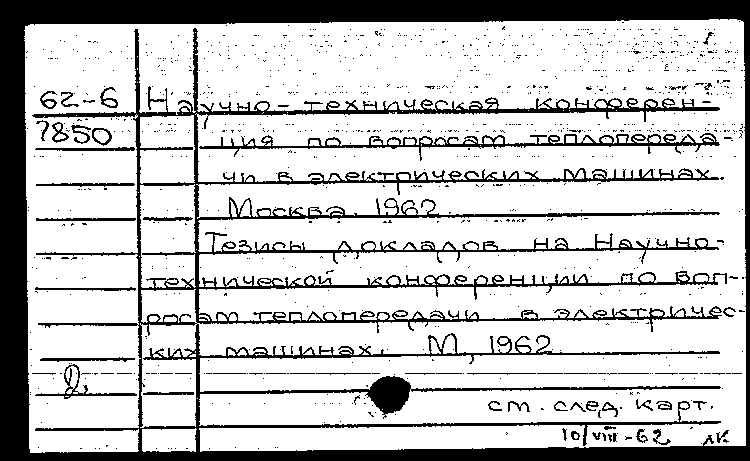 1
62-6 Научно-техническая конферен-
7850 ция по вопросам теплопереда-
чи в электрических машинах.
Москва. 1962
Тезисы докладов на Научно-
технической конференции по воп-
росам теплопередачи в электричес-
ких машинах. М., 1962
2.
см. след. карт.
10/VIII-62 лк